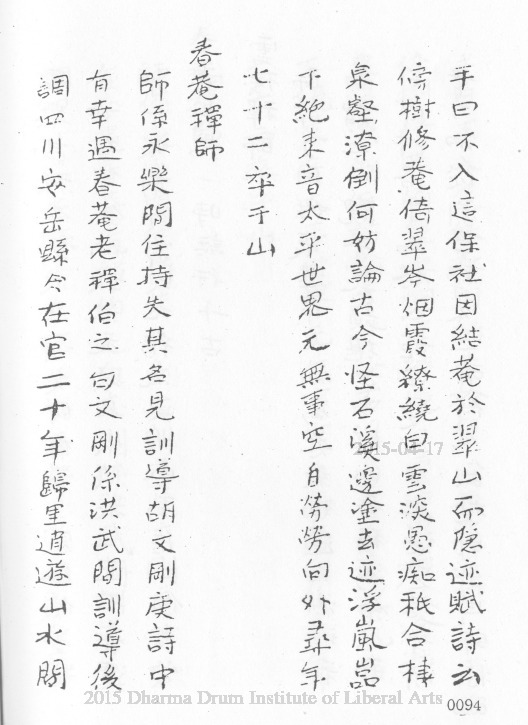 手曰不入這保社因結菴於翠山而隱迹賦詩云
傍樹修菴倚翠岑烟霞繚繞白雲淡愚痴秪合棲
泉壑潦倒何妨論古今怪石溪邊塗去迹浮嵐嵓
下絶来音太平世界元無事空自勞勞向外尋年
七十二卒于山
春菴禪師
師係永樂間住持失其名見訓導胡文剛庚詩中
有幸遇春菴老禪伯之句文剛係洪武間訓導後
調四川安岳縣令在官二十年歸里逍遊山水間
2015-04-17
2015 Dharma Drum Institute of Liberal Arts
0094